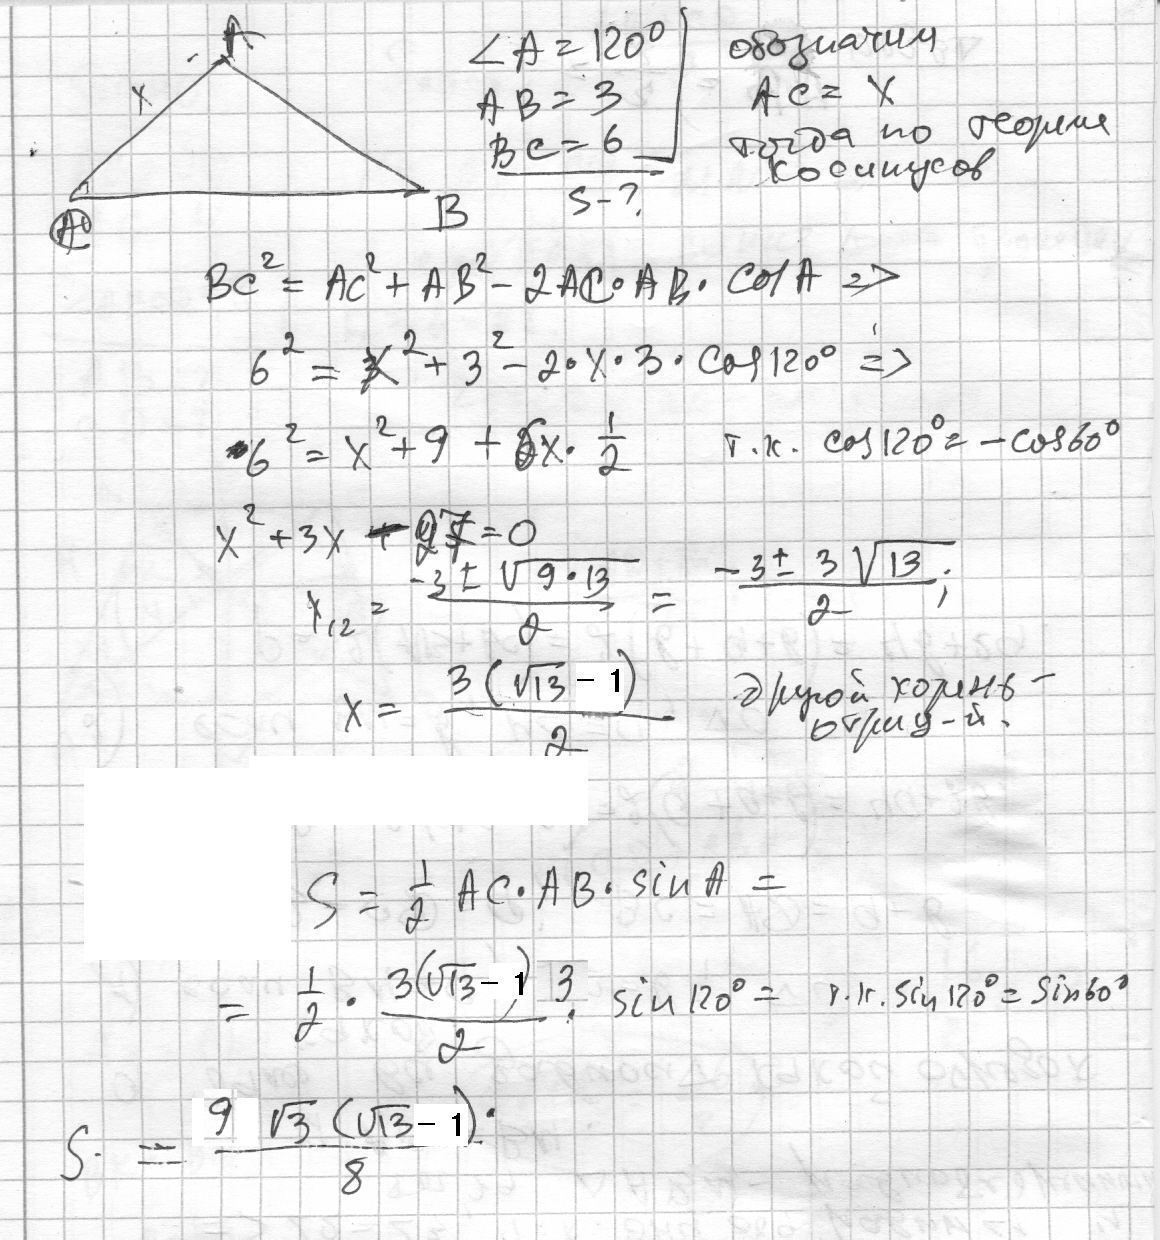 A
x
B
∠A = 120°
AB = 3
BC = 6
S - ?
обозначим
AC = x
тогда по теореме
косинусов
BC² = AC² + AB² - 2AC·AB·cosA =>
6² = x² + 3² - 2·x·3·cos120° =>
6² = x² + 9 + 6x·1/2 т.к. cos120° = -cos60°
x² + 3x - 27 = 0
x₁₂ = (-3 ± √(9·13))/2 = (-3 ± 3√13)/2 ;
x = 3(√13 - 1)/2 другой корень -
отриц-й.
S = 1/2 AC·AB·sinA =
= 1/2 · 3(√13 - 1)/2 · 3 · sin120° = т.к. sin120° = sin60°
S = 9√3(√13 - 1)/8